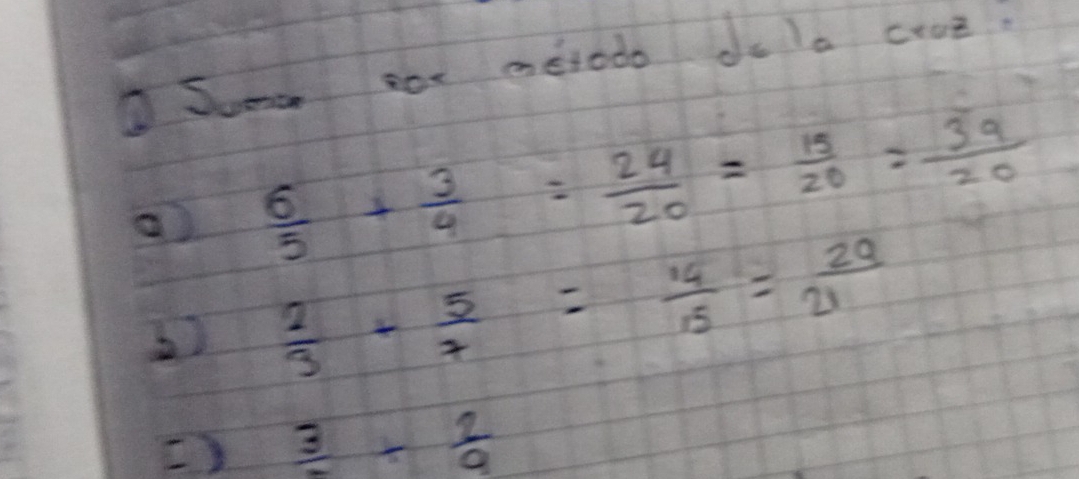 Sumar por método de la cruz:
a) 6/5 + 3/4 = 24/20 = 15/20 = 39/20
b) 2/3 + 5/7 = 14/15 = 29/21
c) 3/ + 2/9